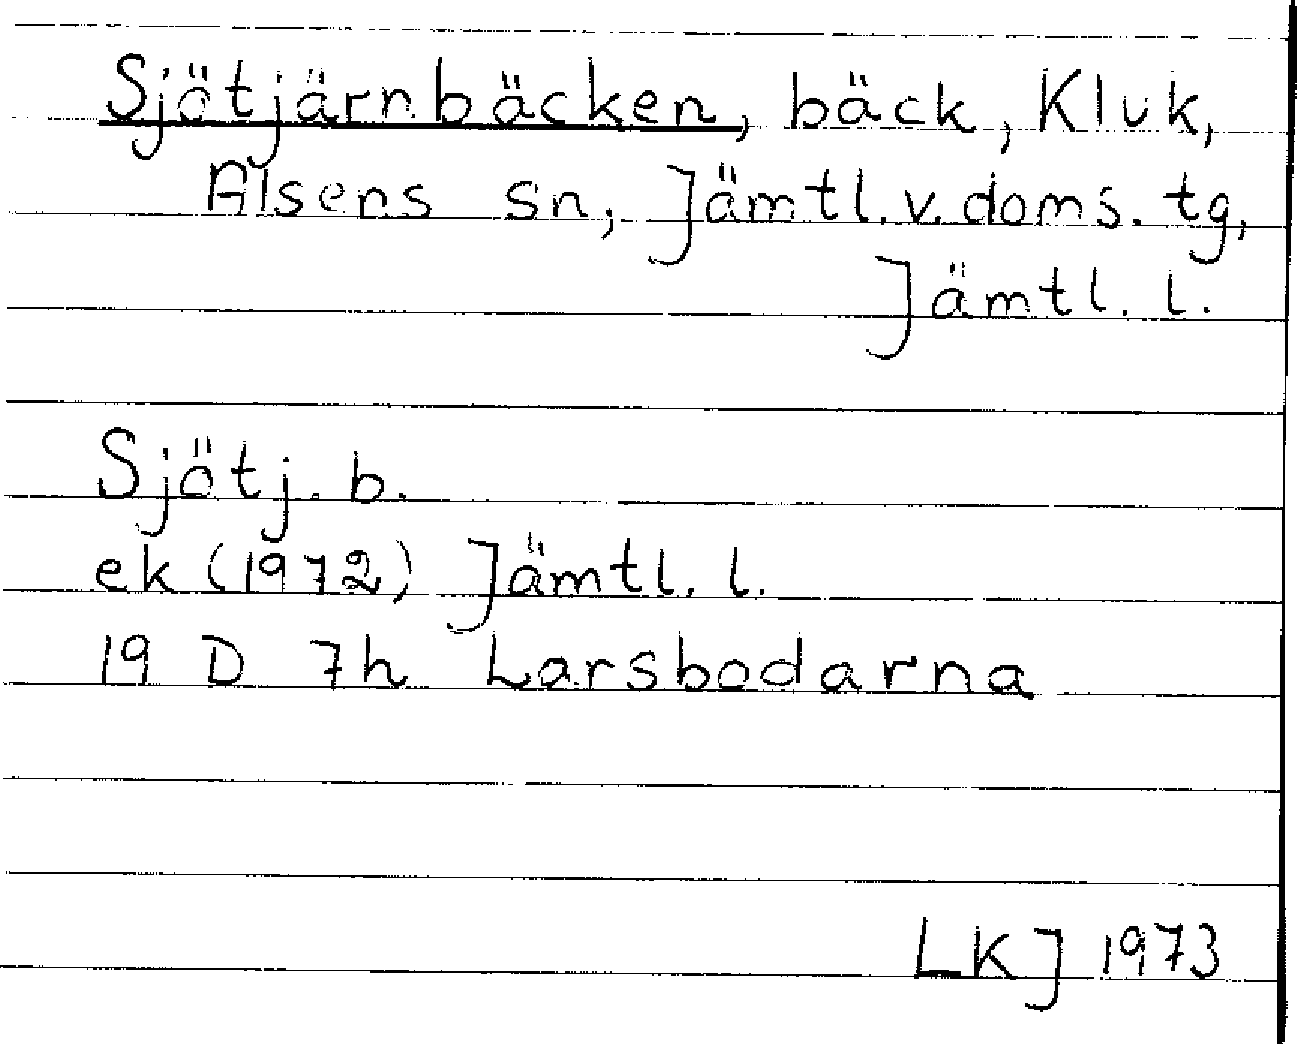 Sjötjärnbäcken, bäck, Kluk,
Alsens sn, Jämtl.v.doms.tg,
Jämtl. l.
Sjötj. b.
ek (1972) Jämtl. l.
19 D 7h Larsbodarna
LKJ 1973